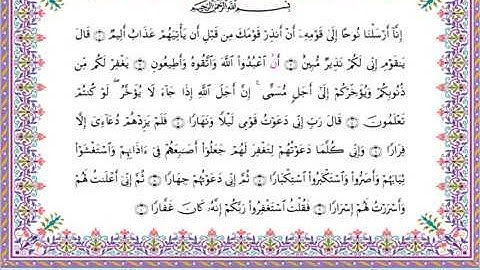 بِسْمِ اللَّهِ الرَّحْمَٰنِ الرَّحِيمِ
إِنَّا أَرْسَلْنَا نُوحًا إِلَىٰ قَوْمِهِ أَنْ أَنذِرْ قَوْمَكَ مِن قَبْلِ أَن يَأْتِيَهُمْ عَذَابٌ أَلِيمٌ ۝ قَالَ
يَٰقَوْمِ إِنِّي لَكُمْ نَذِيرٌ مُّبِينٌ ۝ أَنِ اعْبُدُوا اللَّهَ وَاتَّقُوهُ وَأَطِيعُونِ ۝ يَغْفِرْ لَكُم مِّن
ذُنُوبِكُمْ وَيُؤَخِّرْكُمْ إِلَىٰ أَجَلٍ مُّسَمًّى ۚ إِنَّ أَجَلَ اللَّهِ إِذَا جَاءَ لَا يُؤَخَّرُ ۖ لَوْ كُنتُمْ
تَعْلَمُونَ ۝ قَالَ رَبِّ إِنِّي دَعَوْتُ قَوْمِي لَيْلًا وَنَهَارًا ۝ فَلَمْ يَزِدْهُمْ دُعَاءِي إِلَّا
فِرَارًا ۝ وَإِنِّي كُلَّمَا دَعَوْتُهُمْ لِتَغْفِرَ لَهُمْ جَعَلُوا أَصَٰبِعَهُمْ فِي ءَاذَانِهِمْ وَاسْتَغْشَوْا
ثِيَابَهُمْ وَأَصَرُّوا وَاسْتَكْبَرُوا اسْتِكْبَارًا ۝ ثُمَّ إِنِّي دَعَوْتُهُمْ جِهَارًا ۝ ثُمَّ إِنِّي أَعْلَنتُ لَهُمْ
وَأَسْرَرْتُ لَهُمْ إِسْرَارًا ۝ فَقُلْتُ اسْتَغْفِرُوا رَبَّكُمْ إِنَّهُ كَانَ غَفَّارًا ۝